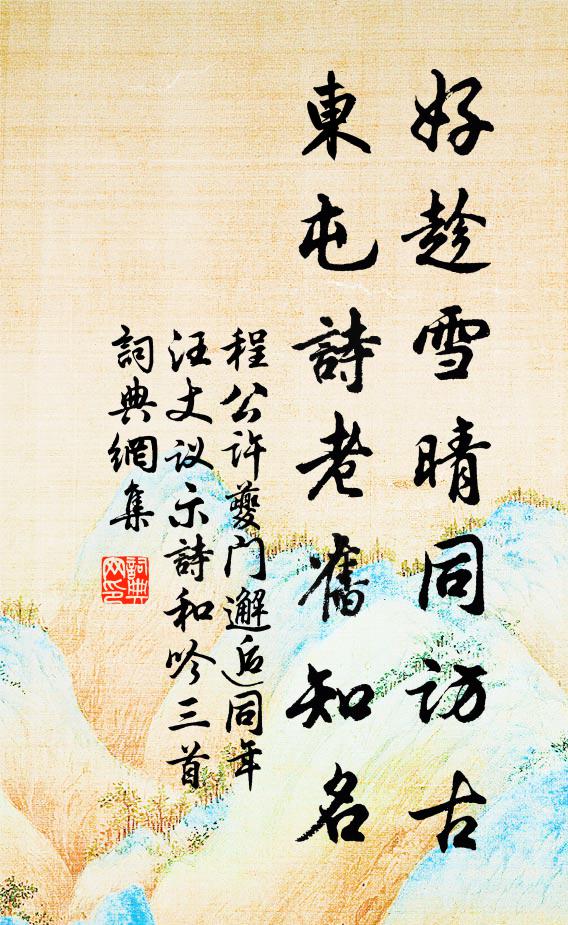 好趁雪晴同訪古
東屯詩老舊知名
程公许夔门邂逅同年
汪丈议示詩和吟三首
詞典網集
詞典
网印